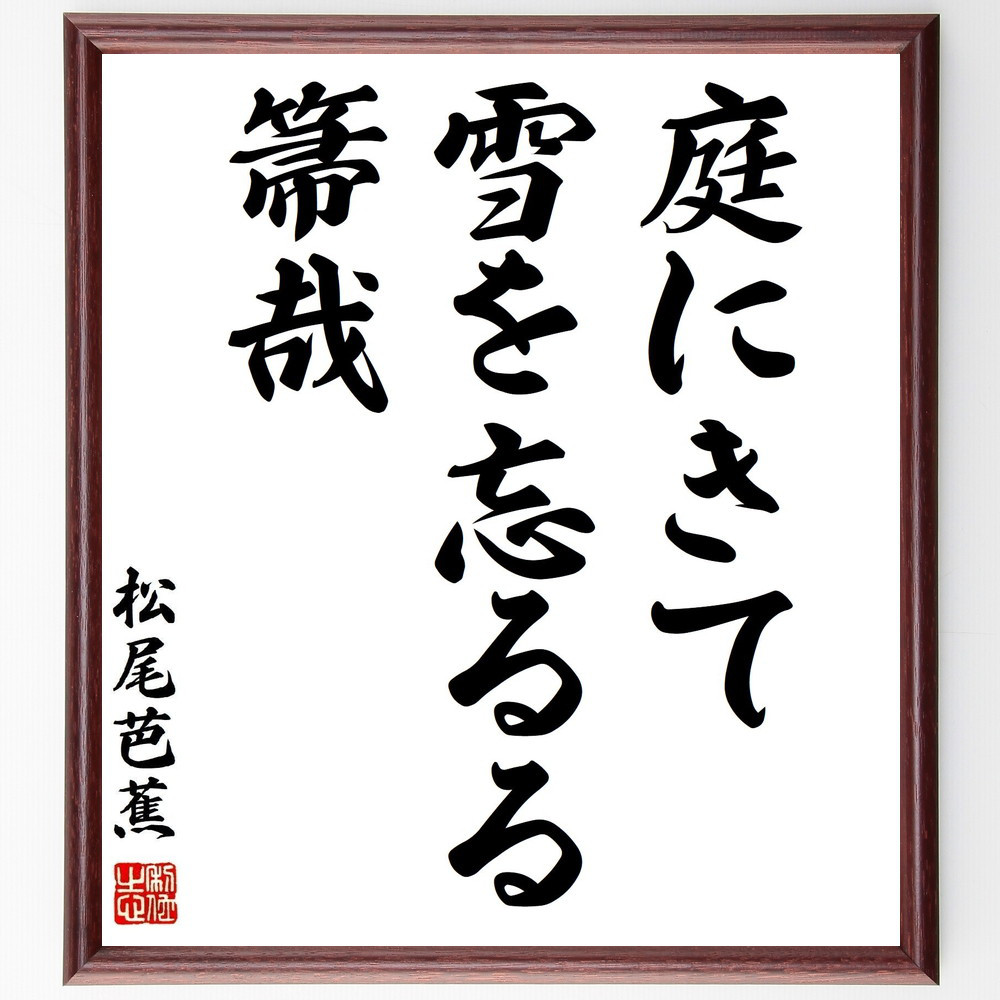 庭にきて
雪を忘るる
箒哉
松尾芭蕉